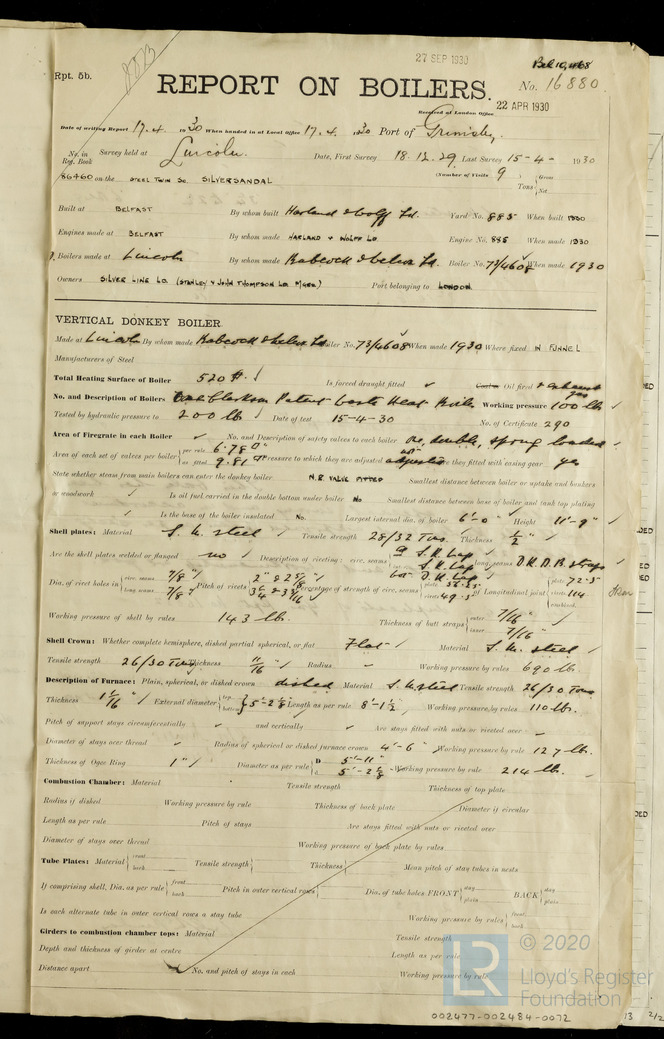 27 SEP 1930
Rpt. 5b.
REPORT ON BOILERS.
No. 16880
Received at London Office 22 APR 1930
Date of writing Report 17.4. 1930 When handed in at Local Office 17.4. 1930 Port of Grimsby
No. in Reg. Book Survey held at Lincoln. Date, First Survey 18.12.29 Last Survey 15-4- 1930
86460 on the STEEL TWIN SC. SILVERSANDAL (Number of Visits 9) Tons Gross Net
Built at BELFAST By whom built Harland & Wolff Ld. Yard No. 885 When built 1930
Engines made at BELFAST By whom made HARLAND & WOLFF LD Engine No. 885 When made 1930
Boilers made at Lincoln By whom made Babcock & Wilcox Ld. Boiler No. 73/4608 When made 1930
Owners SILVER LINE LD. (STANLEY & JOHN THOMPSON LD. MGRS.) Port belonging to LONDON
VERTICAL DONKEY BOILER
Made at Lincoln By whom made Babcock & Wilcox Ld Boiler No. 73/4608 When made 1930 Where fixed IN FUNNEL
Manufacturers of Steel
Total Heating Surface of Boiler 520 ft. Is forced draught fitted Coal or Oil fired & exhaust gas
No. and Description of Boilers One Clarkson Patent Waste Heat Boiler Working pressure 100 lb
Tested by hydraulic pressure to 200 lb Date of test 15-4-30 No. of Certificate 290
Area of Firegrate in each Boiler No. and Description of safety valves to each boiler One, double, spring loaded
Area of each set of valves per boiler per rule 6.78 as fitted 9.81 Pressure to which they are adjusted Are they fitted with easing gear yes
State whether steam from main boilers can enter the donkey boiler N.R. VALVE FITTED Smallest distance between boiler or uptake and bunkers
or woodwork Is oil fuel carried in the double bottom under boiler No Smallest distance between base of boiler and tank top plating
Is the base of the boiler insulated No. Largest internal dia. of boiler 6'-0" Height 11'-9"
Shell plates: Material S. M. steel Tensile strength 28/32 Tons Thickness 1/2"
Are the shell plates welded or flanged no Description of riveting: circ. seams S.R. Lap D.R. Lap long. seams D.R.D.B. straps
Dia. of rivet holes in circ. seams 7/8" long. seams 7/8" Pitch of rivets Percentage of strength of circ. seams 49.5 of Longitudinal joint plate 72.5 rivets 114 combined
Working pressure of shell by rules 143 lb. Thickness of butt straps outer 7/16" inner 7/16"
Shell Crown: Whether complete hemisphere, dished partial spherical, or flat Flat Material S. M. steel
Tensile strength 26/30 Tons Thickness 11/16" Radius Working pressure by rules 690 lb.
Description of Furnace: Plain, spherical, or dished crown dished Material S. M. steel Tensile strength 26/30 Tons
Thickness External diameter top bottom Length as per rule 8'-1 1/2" Working pressure by rules 110 lb.
Pitch of support stays circumferentially and vertically Are stays fitted with nuts or riveted over
Diameter of stays over thread Radius of spherical or dished furnace crown 4'-6" Working pressure by rule 127 lb.
Thickness of Ogee Ring 1" Diameter as per rule D 5'-11" d 5'-2 5/8" Working pressure by rule 214 lb.
Combustion Chamber: Material Tensile strength Thickness of top plate
Radius if dished Working pressure by rule Thickness of back plate Diameter if circular
Length as per rule Pitch of stays Are stays fitted with nuts or riveted over
Diameter of stays over thread Working pressure of back plate by rules
Tube Plates: Material front back Tensile strength Thickness Mean pitch of stay tubes in nests
If comprising shell, Dia. as per rule front back Pitch in outer vertical rows Dia. of tube holes FRONT stay plain BACK stay plain
Is each alternate tube in outer vertical rows a stay tube Working pressure by rules front back
Girders to combustion chamber tops: Material Tensile strength
Depth and thickness of girder at centre Length as per rule
Distance apart No. and pitch of stays in each Working pressure by rule
LR © 2020
Lloyd's Register
Foundation
002477-002484-0072